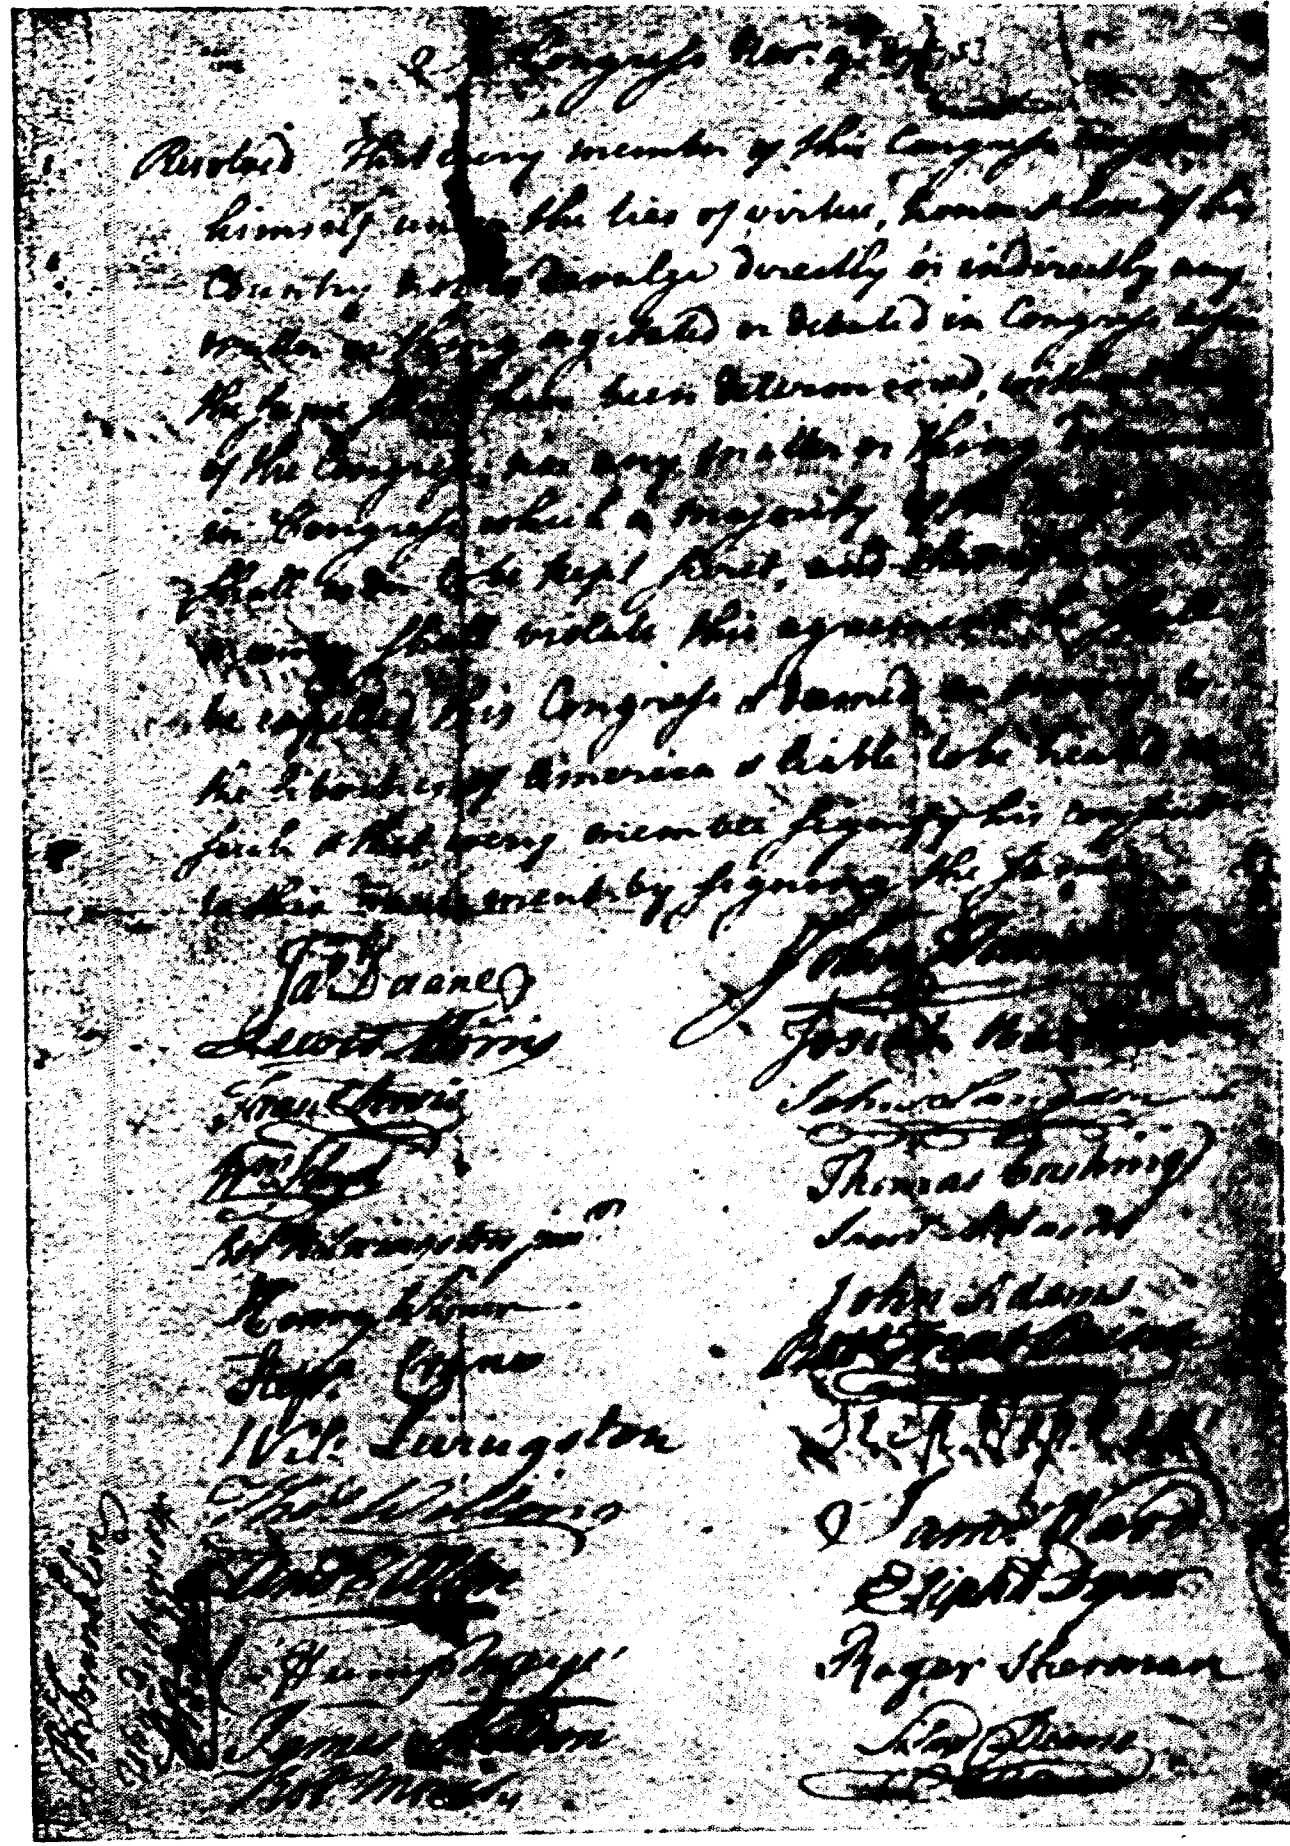 In Congress Nov. 9. 1775 53
Resolved That every member of this Congress consider
himself under the ties of virtue, honor & love of his
Country not to divulge directly or indirectly any
matter or thing agitated or debated in Congress before
the same shall have been determined, without
of the Congress; nor any matter or thing determined
in Congress which a majority of the Congress
shall order to be kept secret, and that if any
member shall violate this agreement he shall
be expelled this Congress & deemed an enemy to
the liberties of America & liable to be treated as
such & that every member signify his consent
to this agreement by signing the same
Jas Duane
Lewis Morris
Frans Lewis
Wm Floyd
Robt R Livingston junr
Henry Wisner
Stepn Crane
Wil: Livingston
Thos Willing
Andw Allen
Chs Humphreys
James Wilson
Robt Morris
John Hancock
Josiah Bartlett
John Langdon
Thomas Cushing
Saml Adams
John Adams
Robt Treat Paine
Step Hopkins
Saml Ward
Elipht Dyer
Roger Sherman
Silas Deane
B Franklin